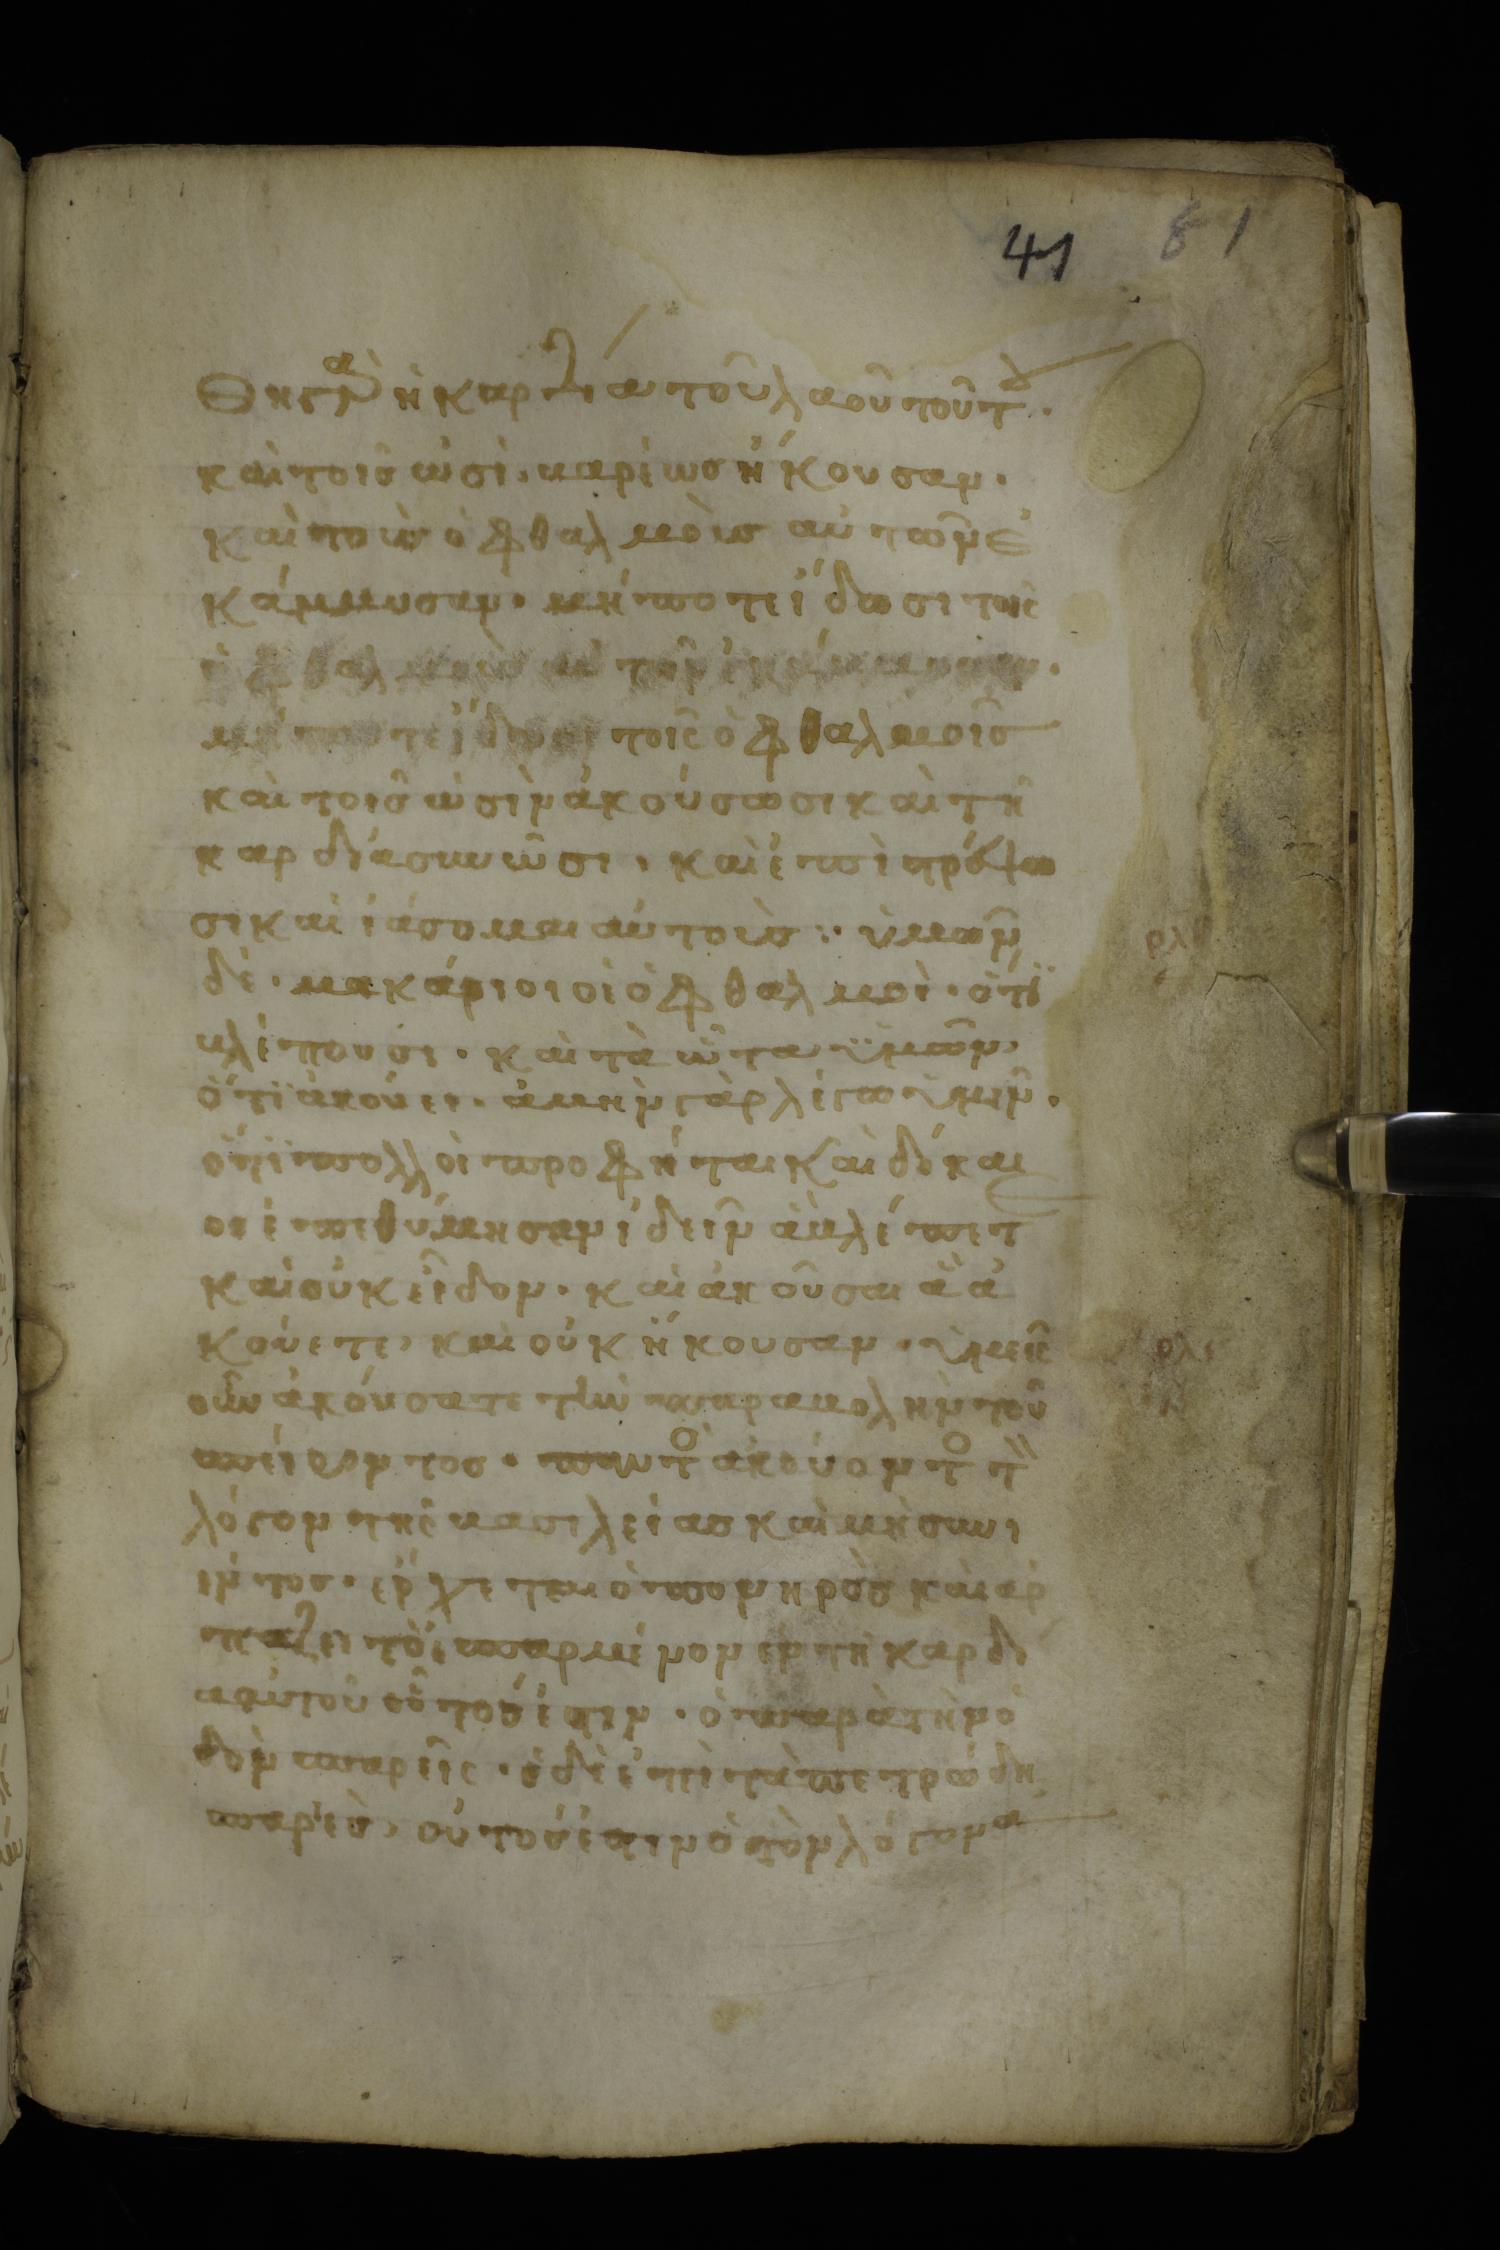 41 81
θη γὰρ ἡ καρδία τοῦ λαοῦ τούτ.
καὶ τοῖς ὠσὶ. βαρέως ἤκουσαν.
καὶ τοὺς ὀφθαλμοὺς αὐτῶν ἐ
κάμμυσαν. μήποτε ἴδωσι τοῖς
ὀφθαλμοὺς αὐτῶν ἐκάμμυσαν.
μήποτε ἴδωσι τοῖς ὀφθαλμοῖς
καὶ τοῖς ὠσὶν ἀκούσωσι καὶ τῆ
καρδία συνῶσι. καὶ ἐπιτρέψω
σι καὶ ἰάσομαι αὐτούς: ὑμῶν
δὲ. μακάριοι οἱ ὀφθαλμοὶ. ὅτι
βλέπουσι. καὶ τὰ ὦτα ὑμῶν,
ὅτι ἀκούει. ἀμὴν γὰρ λέγω ὑμῖν.
ὅτι πολλοὶ προφῆται καὶ δίκαι
οι ἐπεθύμησαν ἰδεῖν ἃ βλέπετε
καὶ οὐκ εἶδον. καὶ ἀκοῦσαι ἃ ἀ
κούετε, καὶ οὐκ ἤκουσαν. ὑμεῖς
οὖν ἀκούσατε τὴν παραβολὴν τοῦ
σπείροντος. παντὸς ἀκούοντος τὸν
λόγον τῆς βασιλείας καὶ μὴ συνι
έντος. ἔρχεται ὁ πονηρὸς καὶ ἁρ
πάζει τὸ ἐσπαρμένον ἐν τῆ καρδί
α αὐτοῦ οὗτός ἐστιν. ὁ παρὰ τὴν ὁ
δὸν σπαρεῖς. ὁ δὲ ἐπὶ τὰ πετρώδη
σπαρεὶς, οὗτός ἐστιν ὁ τὸν λόγον